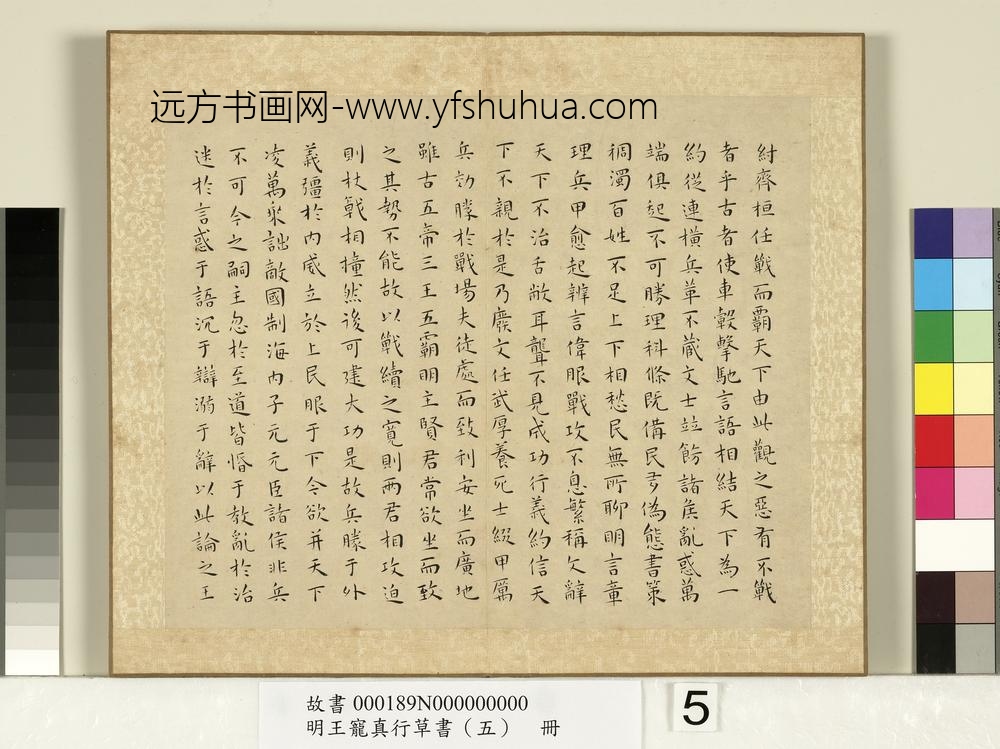 远方书画网-www.yfshuhua.com
紂齊桓任戰而霸天下由此觀之惡有不戰
者乎古者使車轂擊馳言語相結天下為一
約從連橫兵革不藏文士竝飭諸矦亂惑萬
端俱起不可勝理科條既備民多偽態書策
稠濁百姓不足上下相愁民無所聊明言章
理兵甲愈起辨言偉服戰攻不息繁稱文辭
天下不治舌敝耳聾不見成功行義約信天
下不親於是乃廢文任武厚養死士綴甲厲
兵効勝於戰場夫徒處而致利安坐而廣地
雖古五帝三王五霸明主賢君常欲坐而致
之其勢不能故以戰續之寬則兩君相攻迫
則杖戟相撞然後可建大功是故兵勝于外
義彊於內威立於上民服于下今欲并天下
凌萬乘詘敵國制海內子元元臣諸侯非兵
不可今之嗣主忽於至道皆惛于教亂於治
迷於言惑于語沉于辯溺于辭以此論之王
故書 000189N000000000
明王寵真行草書（五） 冊
5